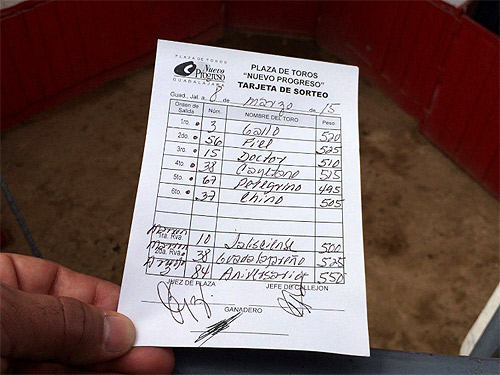 PLAZA DE TOROS
Nuevo
Progreso
GUADALAJARA
PLAZA DE TOROS
"NUEVO PROGRESO"
TARJETA DE SORTEO
Guad., Jal. a 8 de marzo de 15
Orden de Salida Núm. NOMBRE DEL TORO Peso
1ro. 3 Gallo 520
2do. 56 Fiel 525
3ro. 15 Doctor 510
4to. 38 Cayetano 515
5to. 67 Peregrino 495
6to. 37 Chino 505
1ra. Rva. 10 Jalisciense 500
2da. Rva. 38 Guadalupano 525
84 Aniversario 550
JUEZ DE PLAZA JEFE DE CALLEJON
GANADERO